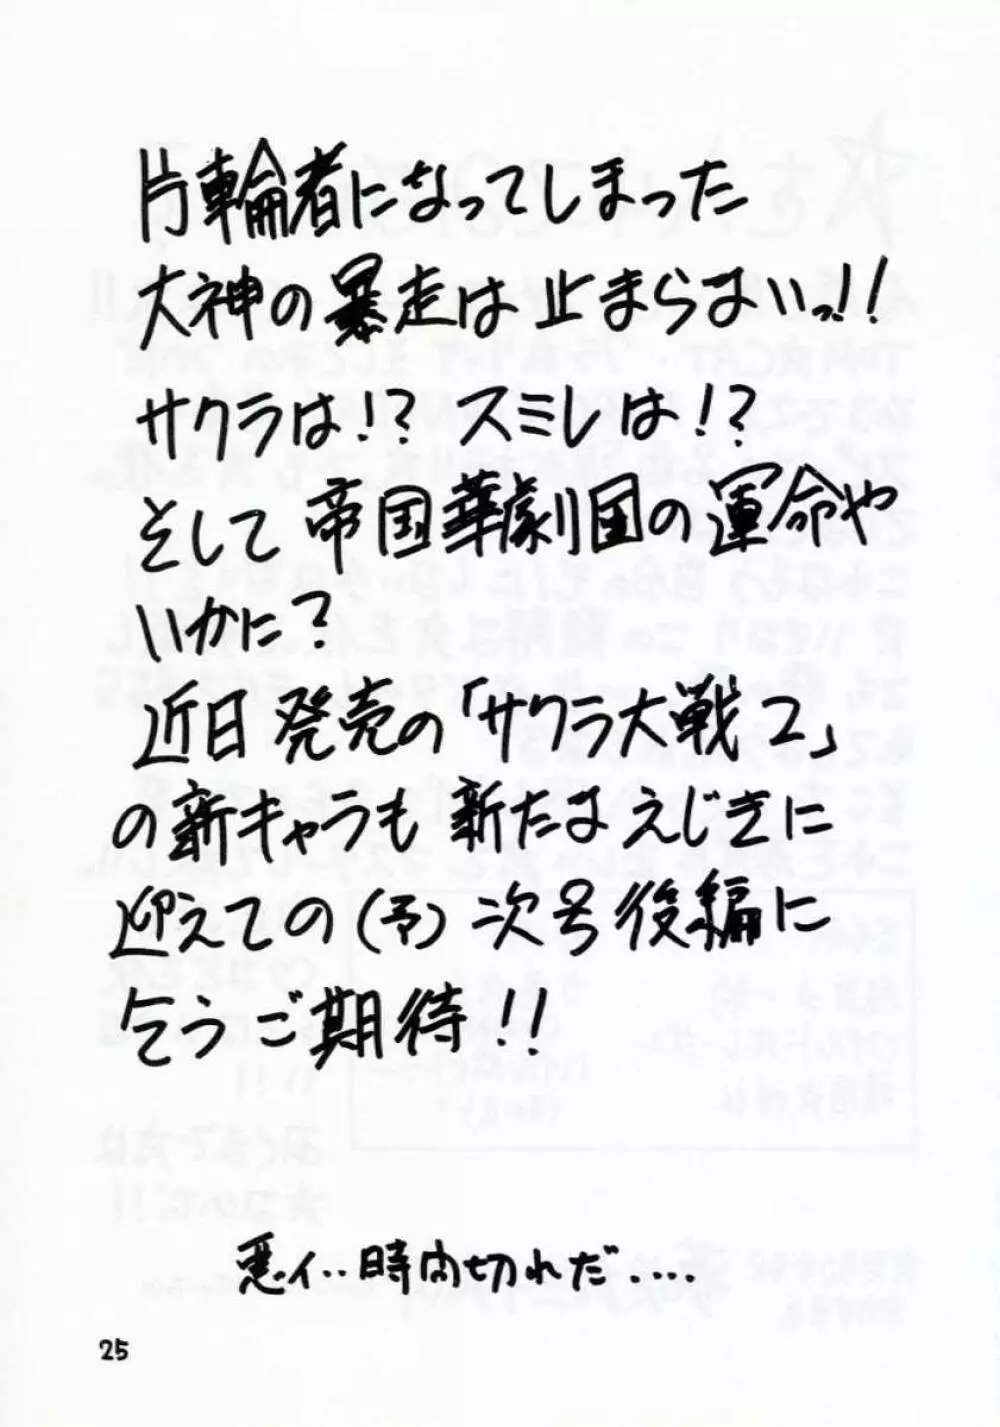 片輪者になってしまった
大神の暴走は止まらないっ!!
サクラは!? スミレは!?
そして帝国華劇国の運命や
いかに?
近日発売の「サクラ大戦2」
の新キャラも新たなえじきに
迎えての(予)次号後編に
乞うご期待!!
悪ィ‥時間切れだ‥‥
25